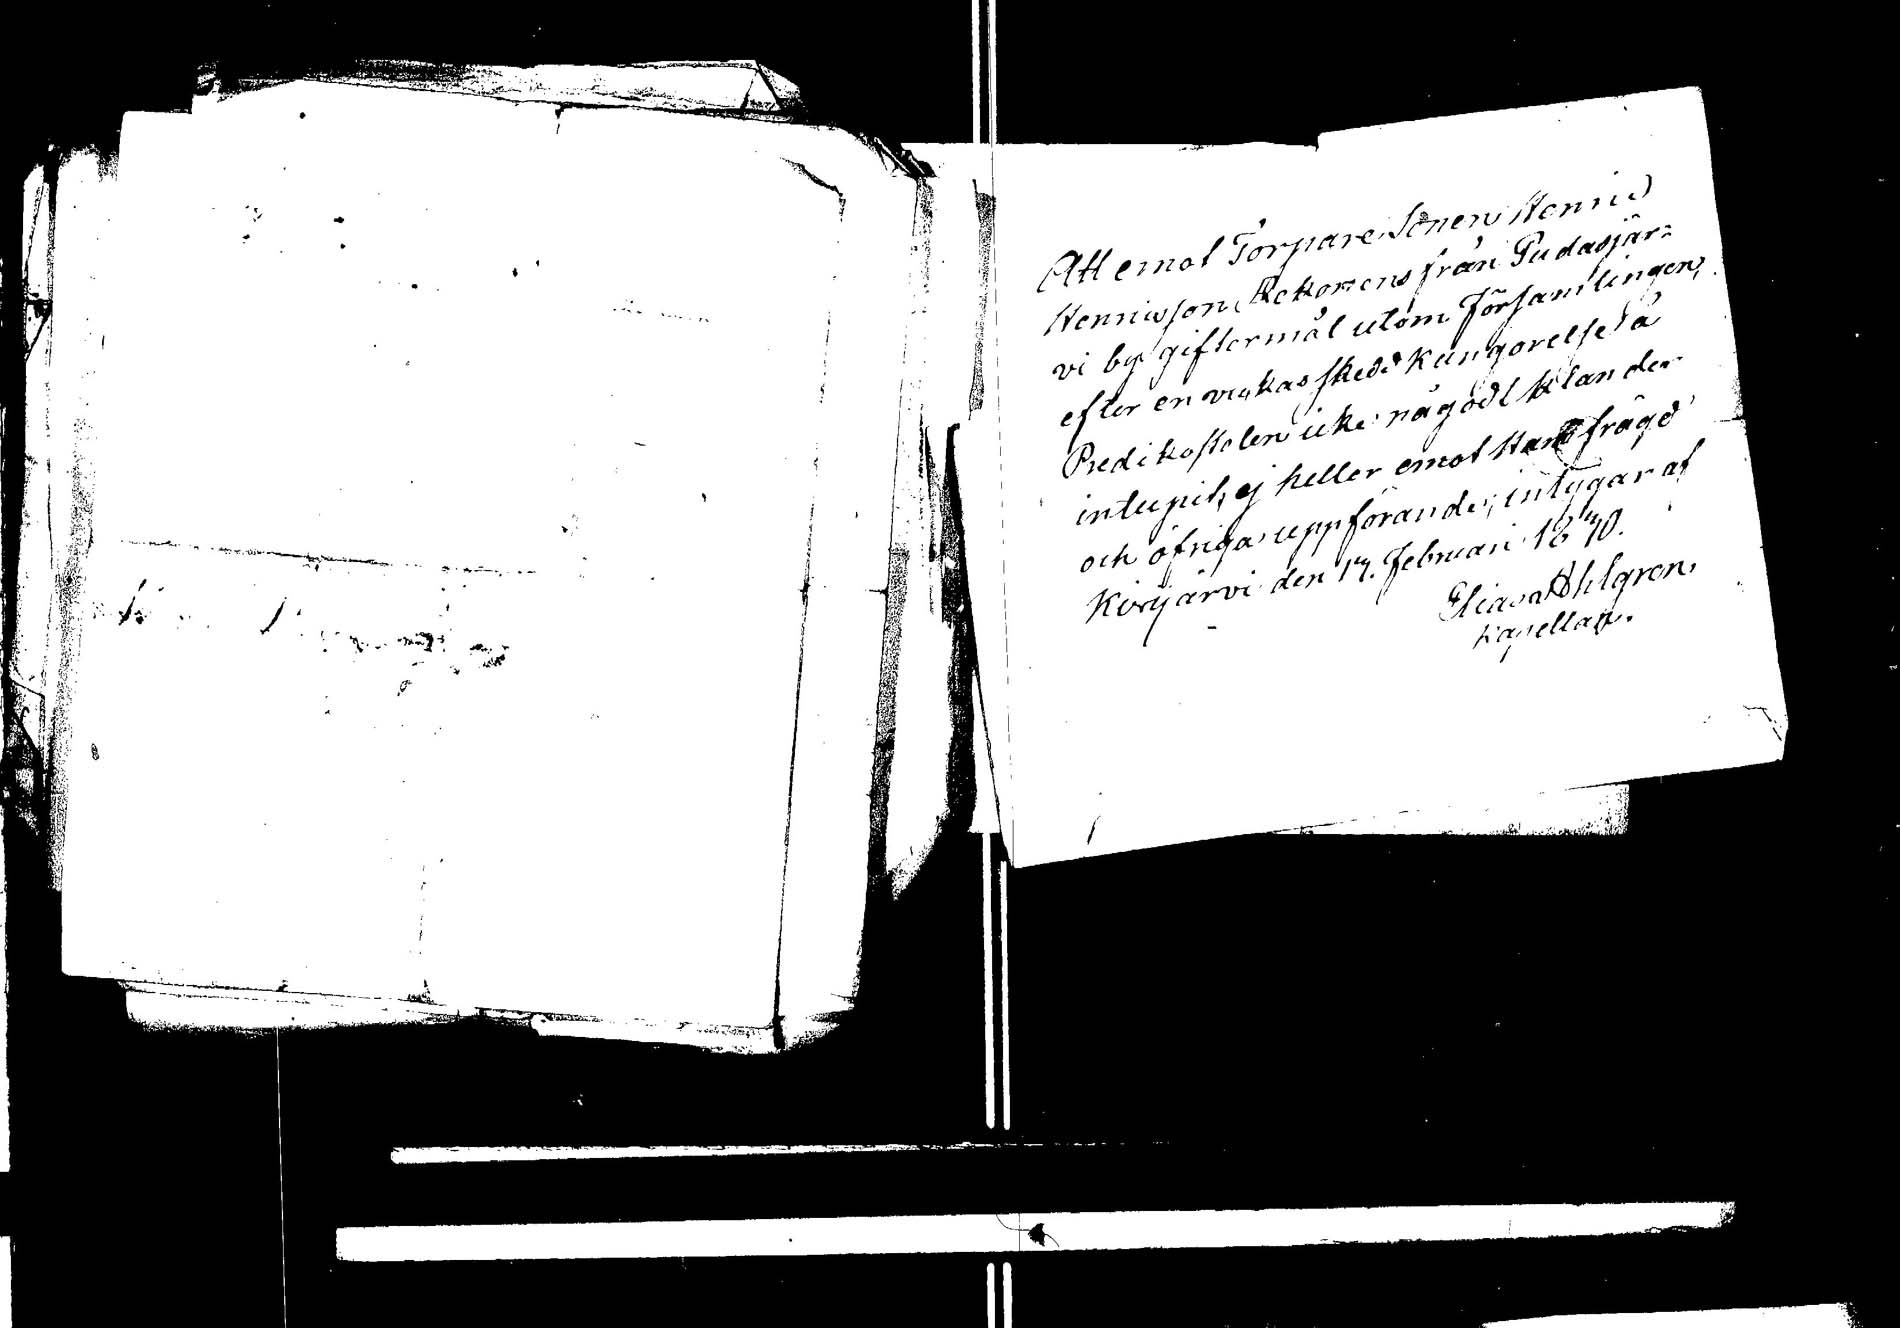 Att emot Torpare Sonen Henric
Henricsson Rekonens från Pudasjär=
vi by giftermål utom Församlingen,
efter en veckas skedd kungörelse å
Predikostolen icke något klander
inlupit, ej heller emot Hans frägd
och öfriga uppförande, intygar af
Kivijärvi den 17. Februari 1840.
Elias Ahlgren,
Kapellan.